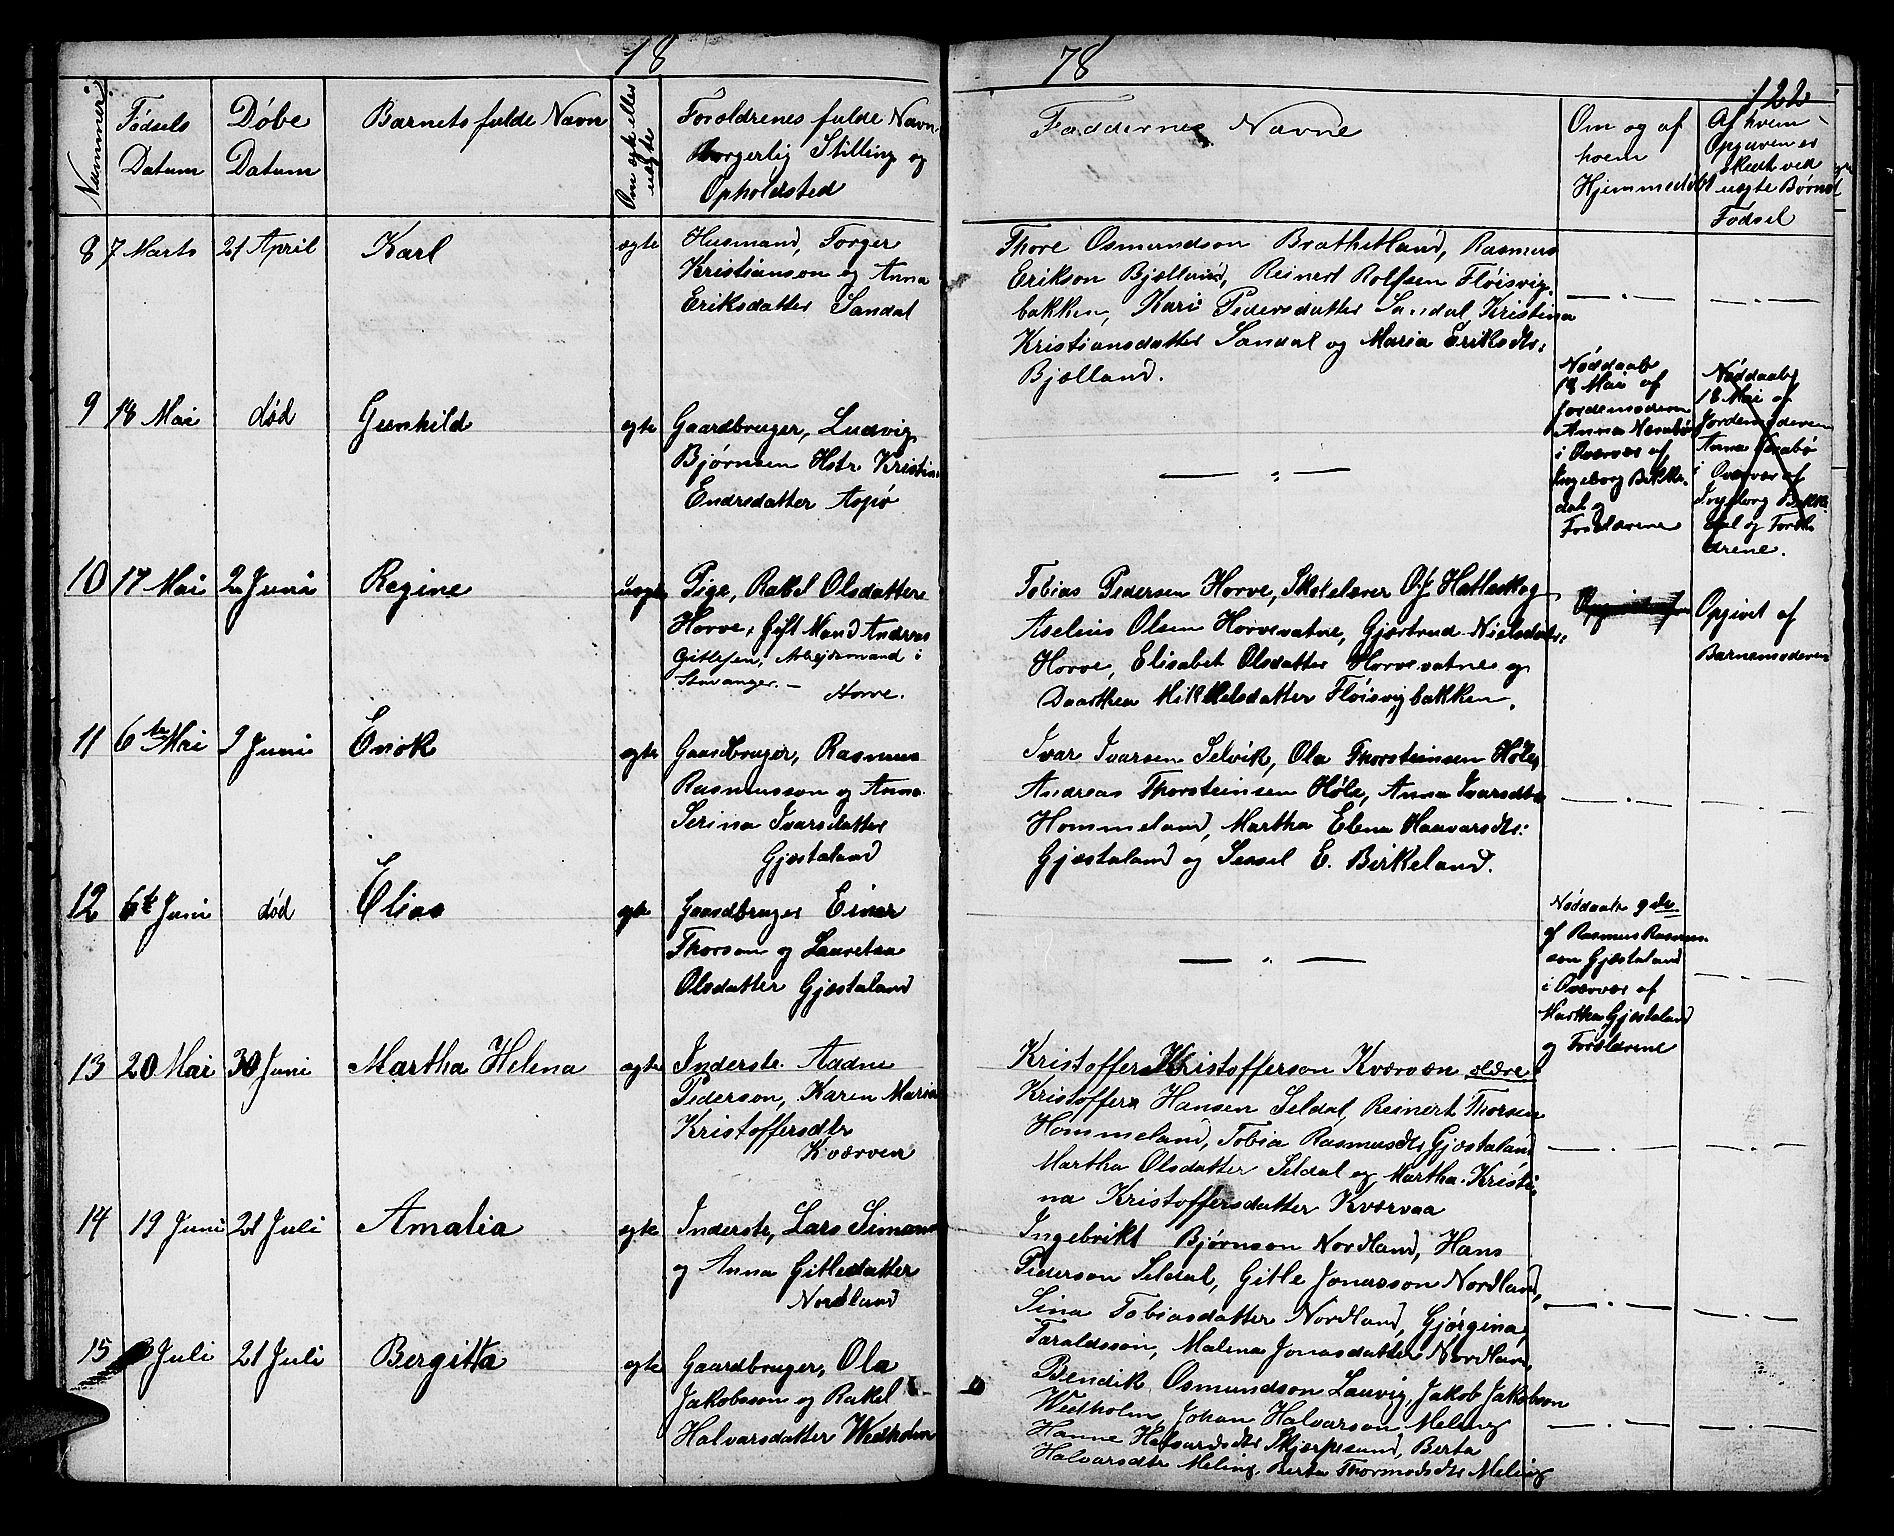 18
78
122
Nummer
Fødsels Datum
Døbe Datum
Barnets fulde Navn
Om ægte eller uægte
Foroldrenes fulde Navn
Borgerlig Stilling og
Opholdsted
Faddernes Navne
Om og af
hvem
Hjemmedøbt
Af hvem
Opgaven er
skedt ved
uægte Børns
Fødsel
8 7 Marts 21 April Karl ægte
Husmand, Torger
Kristianson og Anna
Eriksdatter Sandal
Thore Osmundson Brathetland, Rasmus
Erikson Bjælland, Reinert Rolfsen Fløisvig-
bakken, Kari Pedersdatter Sandal, Kristina
Kristiansdatter Sandal og Maria Eriksdtr:
Bjælland.
9 18 Mai død Gunhild ægte
Gaardbruger, Ludvig
Bjørnsen Hstr Kristine
Endresdatter Aspø
Nøddøabt
18 Mai af
Jordemoderen
Anna Nesabø
i Overvær af
Ingeborg Bekke-
dal og
Foroldrene
Nøddaabt
18 Mai af
Jordemoderen
Anna Nesabø
i Overvær af
Ingeborg Bekke
dal og Forol
drene.
10 17 Mai 2 Juni Regine uægte
Pige, Rakel Olsdatter
Horve, Gift Mand Andreas
Gitlesen, Arbejdsmand i
Stavanger. — Horve.
Tobias Pedersen Horve, Skolelærer O J Hatleskog
Aselius Olsen Horvevatne, Gjærtrud Nielsdatr:
Horve, Elisabet Olsdatter Horvevatne og
Daarthea Mikkelsdatter Fløisvigbakken.
Opgivet af
Barnemoderen
11 6te Mai 9 Juni Enok ægte
Gaardbruger, Rasmus
Rasmusson og Anna
Serina Ivarsdatter
Gjæstaland
Ivar Ivarsen Selvik, Ola Thorsteinsen Høle,
Andreas Thorsteinsen Høle, Anna Ivarsdtr
Hommeland, Martha Elena Haavarsdtr:
Gjæstaland og Sessel E. Birkeland.
12 6te Juni død Elias ægte
Gaardbruger Einar
Thorson og Lauretsa
Olsdatter Gjæstaland
Nøddaabt 9de
af Rasmus Rasmus-
son Gjæstaland
i Overvær af
Martha Gjæstaland
og Foroldrene
13 20 Mai 30 Juni Martha Helena ægte
Inderste. Aadne
Pederson, Karen Maria
Kristoffersdtr
Kværven
Kristoffer Kristofferson Kværven ældre
Kristoffer Hansen Seldal, Reinert Thorsen
Hommeland, Tobia Rasmusdtr Gjæstaland
Martha Olsdatter Seldal og Martha Kristi-
na Kristoffersdatter Kværvaa
14 19 Juni 21 Juli Amalia ægte
Inderste, Lars Simons
og Anna Gitlesdatter
Nordland
Ingebrikt Bjørnson Nordland, Hans
Pederson Seldal, Gitle Jonasson Nordland,
Sina Tobiasdatter Nordland, Gjørgina
Taraldsson, Malena Jonasdatter Nordland
15 3 Juli 21 Juli Bergitta ægte
Gaardbruger, Ola
Jakobsson og Rakel
Halvarsdatter Wedholm
Bendik Osmundson Lauvig, Jakob Jakobsen
Wedholm, Johan Halvarson Meling
Hanne Halvardsdtr Skjørpesund, Berta
Halvarsdtr Meling, Berta Thormodsdtr Meling